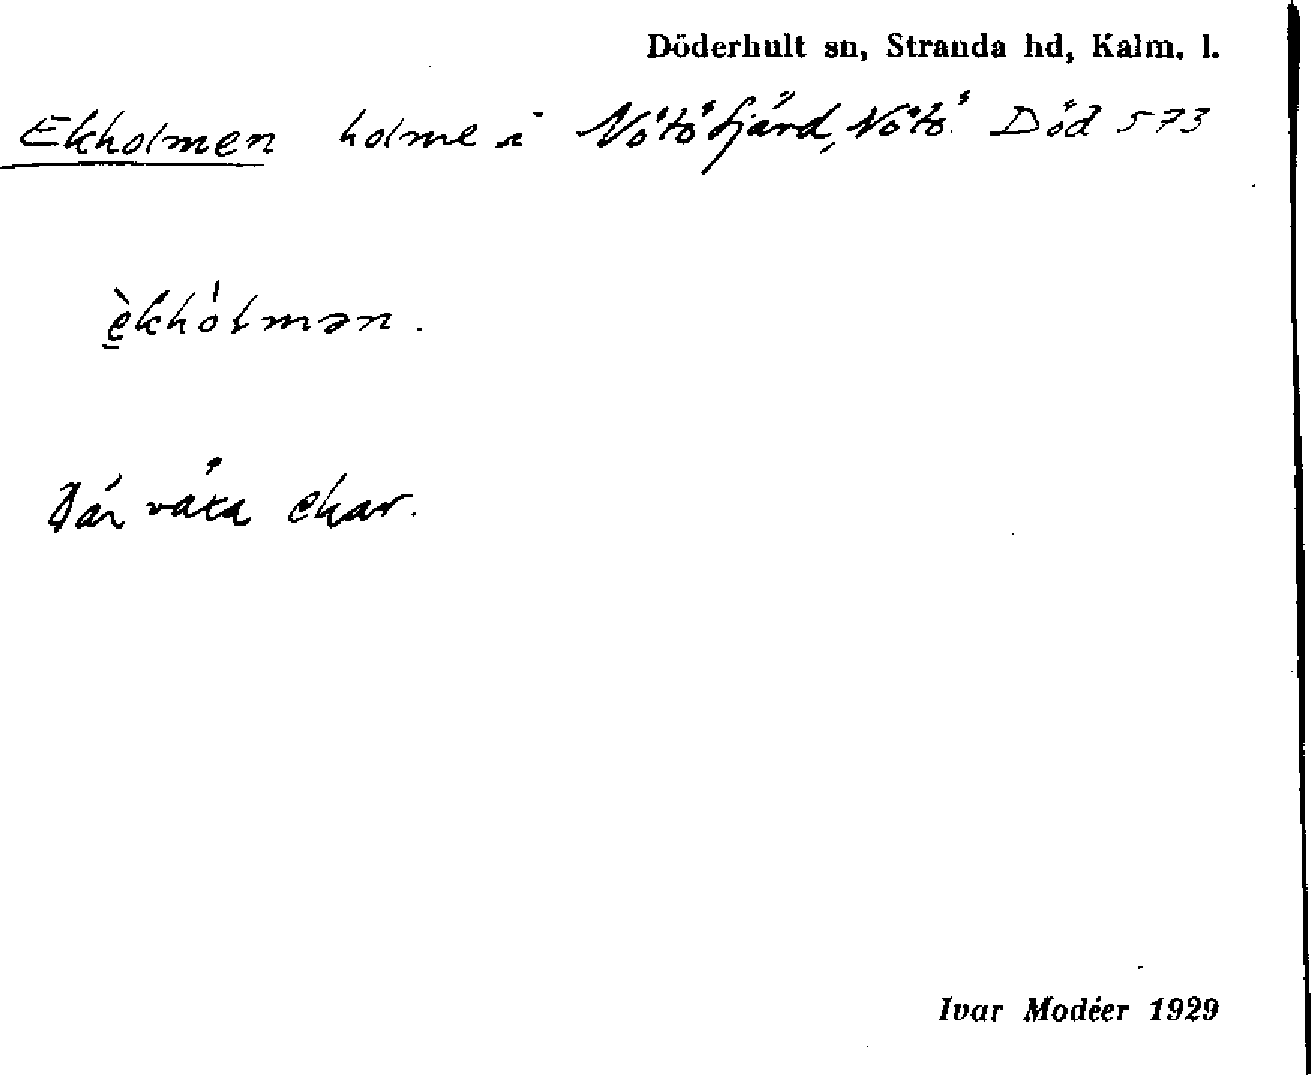 Döderhult sn, Stranda hd, Kalm. l.
Ekholmen holme i Nötöfjärd, Nötö. Död 573
èkhólmən.
Där växa ekar.
Ivar Modéer 1929